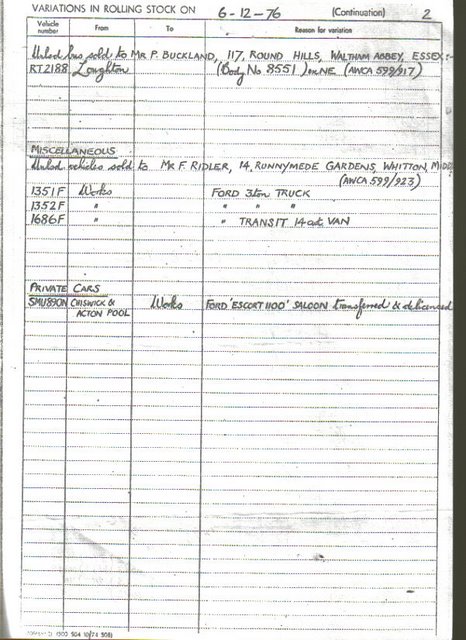 VARIATIONS IN ROLLING STOCK ON 6-12-76 (Continuation) 2
Vehicle number From To Reason for variation
Unlsd bus sold to MR P. BUCKLAND, 117, ROUND HILLS, WALTHAM ABBEY, ESSEX:-
RT2188 Loughton (Body No 8551) on NE (AWCA 599/917)
MISCELLANEOUS
Unlsd vehicles sold to MR F. RIDLER, 14, RUNNYMEDE GARDENS, WHITTON, MIDD
(AWCA 599/923)
1351F Works FORD 3 ton TRUCK
1352F " " " "
1686F " " TRANSIT 14 cwt VAN
PRIVATE CARS
SMU890N CHISWICK & Works FORD 'ESCORT 1100' SALOON transferred & delicenced
ACTON POOL
1300 504 10/74 50B)